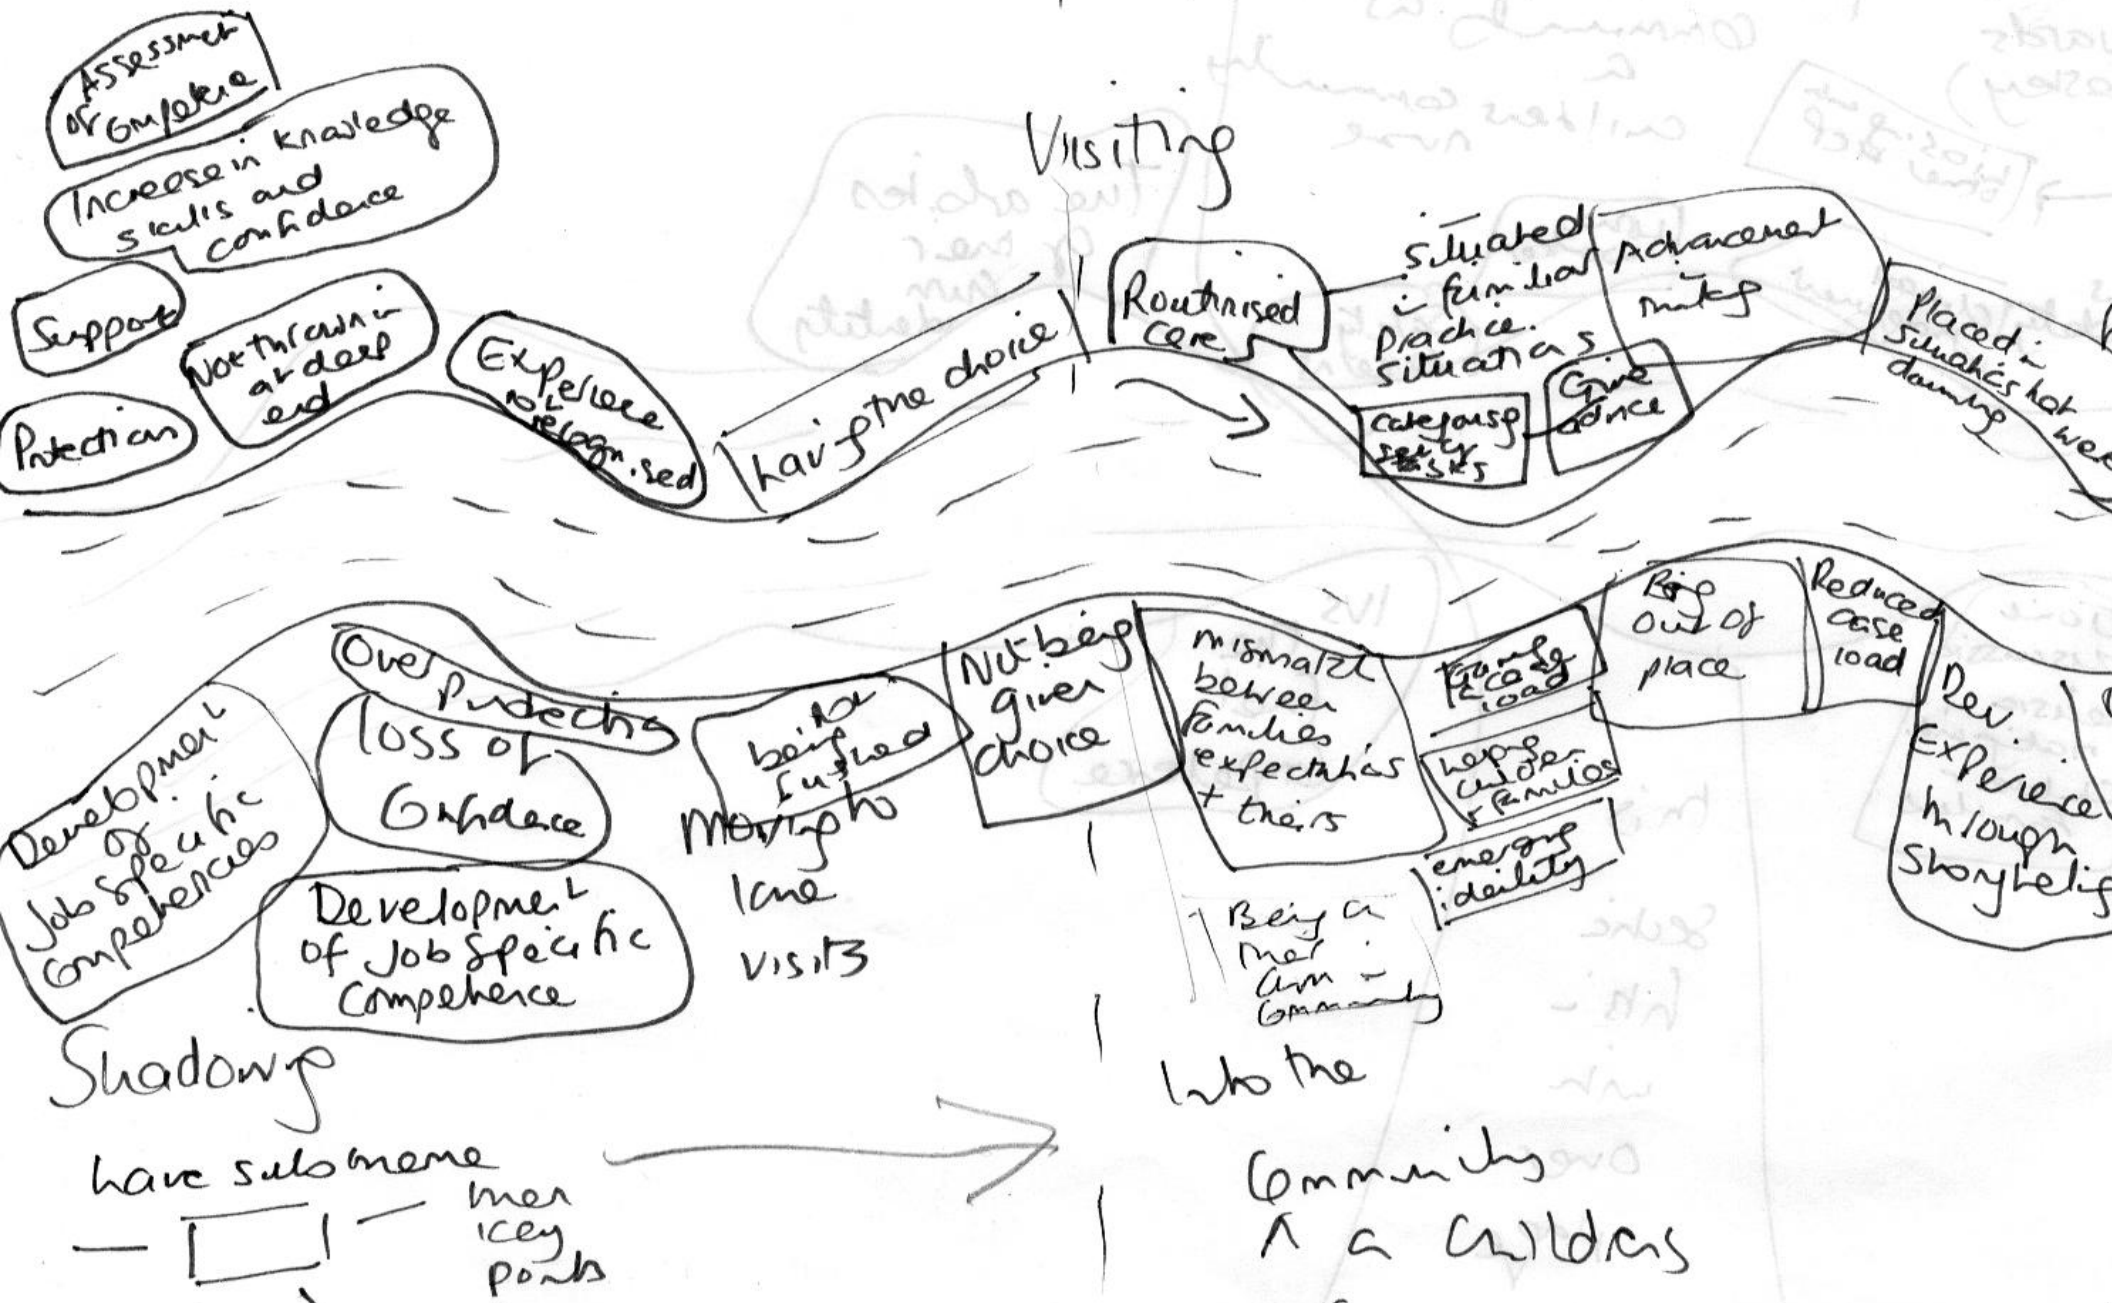 Assessment
of competence
Increase in knowledge
skills and
confidence
Support
Not thrown in
at deep
end
Protection
Experience
not
recognised
having the choice
Visiting
Routinised
care
situated
in familiar
practice
situations
Advancement
in
Give
advice
categorising
tasks
Placed in
situations not
were
daunting
Over
Protecting
loss of
Confidence
Development
of
Job Specific
Competencies
Development
of Job Specific
Competence
not
being
rushed
Moving to
lone
visits
Not being
given
choice
mismatch
between
families
expectations
+ theirs
case
load
children
+ families
emerging
identity
Being
out of
place
Reduced
case
load
Dev.
Experience
through
Storytelling
Being a
their
own in
Community
Shadowing
have sub theme
then
key
points
Into the
Community
A a Childrens